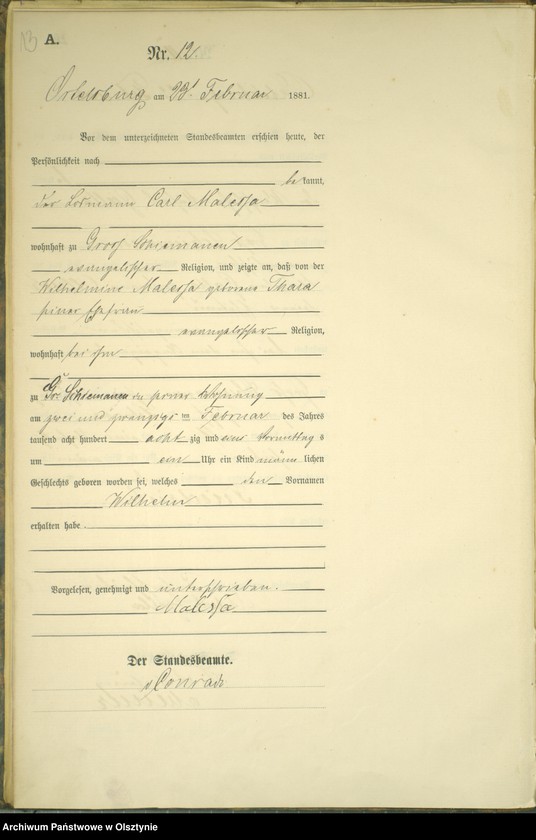 13
A.
Nr. 12.
Ortelsburg am 23t Februar 1881.
Vor dem unterzeichneten Standesbeamten erschien heute, der
Persönlichkeit nach
be kannt,
der Carl Malessa
wohnhaft zu Gross Schiemanen
evangelischer Religion, und zeigte an, daß von der
Wilhelmine Malessa geborene Thara
seiner Ehefrau
evangelischer Religion,
wohnhaft bei ihm
zu Gr. Schiemanen in seiner Wohnung
am zwei und zwanzigsten Februar des Jahres
tausend acht hundert acht zig und eins Vormittag s
um ein Uhr ein Kind männ lichen
Geschlechts geboren worden sei, welches den Vornamen
Wilhelm
erhalten habe.
Vorgelesen, genehmigt und unterschrieben.
Malessa
Der Standesbeamte.
Conrad
Archiwum Państwowe w Olsztynie